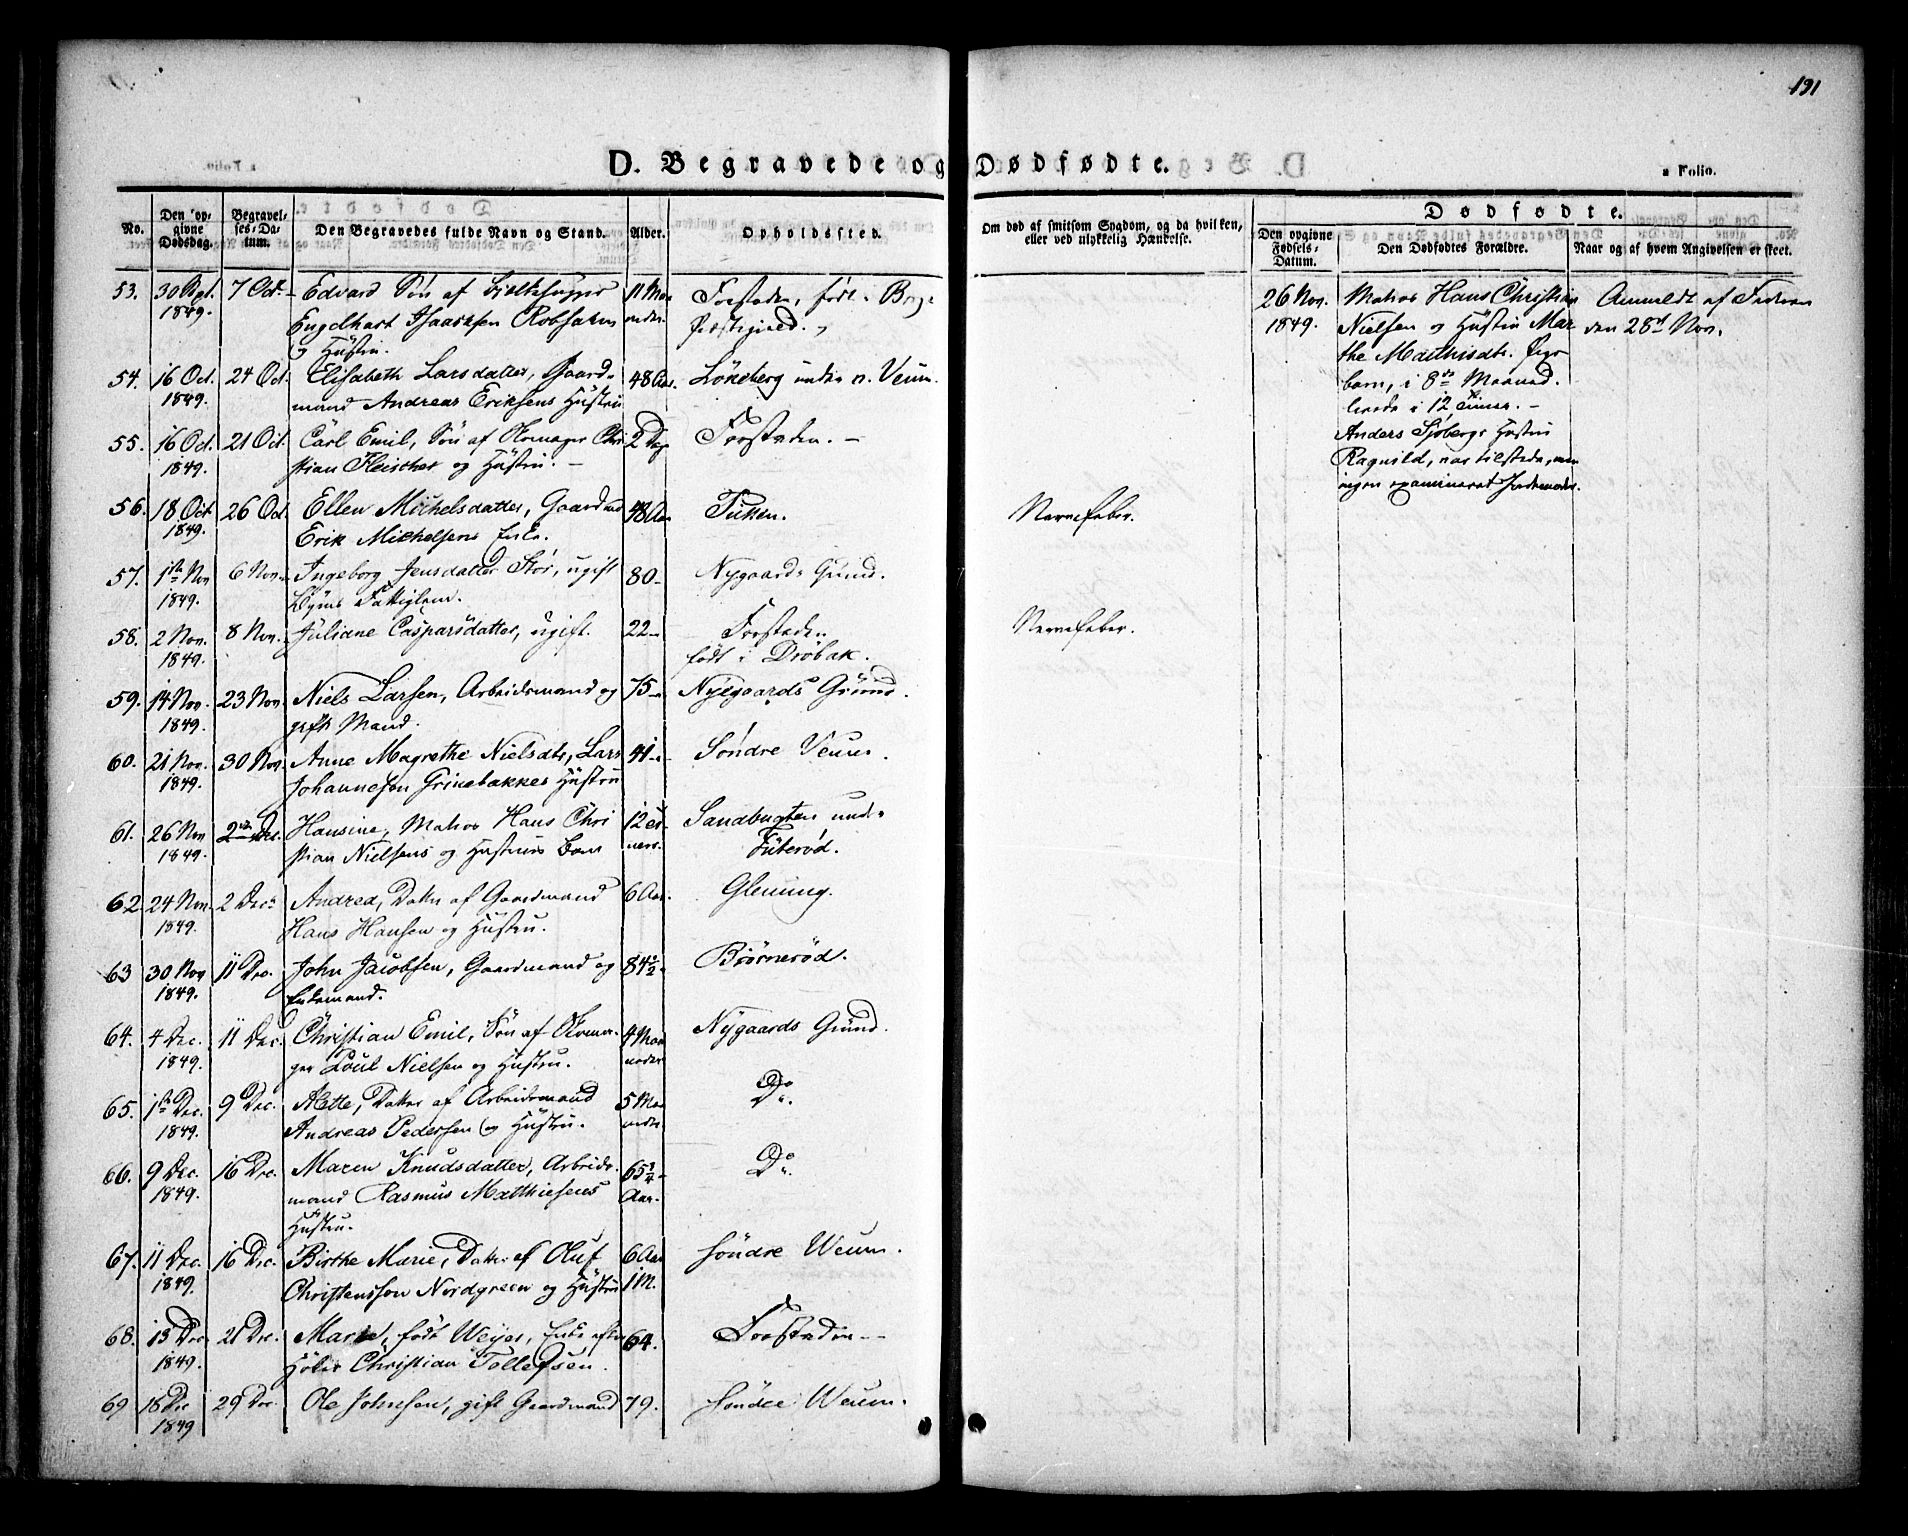 191
D. Begravede og Dødfødte.
a Folio.
No.
Den opgivne Dødsdag.
Begravelses-Datum.
Den Begravedes fulde Navn og Stand.
Alder.
Opholdssted.
Om død af smitsom Sygdom, og da hvilken, eller ved ulykkelig Hændelse.
Dødfødte.
Den opgivne Fødsels-Datum.
Den Dødfødtes Forældre.
Naar og af hvem Angivelsen er skeet.
53. 30 Sept. 7 Oct. Edvard Søn af 11 Maa Forstaden, født i
1849. Engelhart Isaachsen Robsahm neder.
og Hustru.
54. 16 Oct. 24 Oct. Elisabeth Larsdatter, Gaard- 48 Aar. Löneberg under n. Veum.
1849. mand Andreas Eriksens Hustru
55. 16 Oct. 21 Oct. Carl Emil, Søn af Skomager Chri 2 Dage Forstaden. -
1849. stian Fleischer og Hustru. -
56. 18 Oct 26 Oct. Ellen Michelsdatter, Gaardmd 48 Aar Nervefeber.
1849. Erik Michelsens Enke.
57. 1ste Nov 6 Nov. Ingeborg Jensdatter Stór, ugift 80- Nygaards Grund.
1849. Lægds Fattiglem.
58. 2 Nov. 8 Nov. Juliane Caspersdatter, ugift. 22- Forstaden Nervefeber.
1849. født i Dröbak.
59. 14 Nov. 23 Nov. Niels Larsen, Arbeidsmand og 75- Nyegaards Grund.
1849. gift Mand.
60. 21 Nov. 30 Nov. Anne Magrethe Nielsdtr, Lars 41- Söndre Veum
1849. Johannesen Grinebakkes Hustru
61. 26 Nov 2den Dec. Hansine, Matros Hans Chri 12 ti Sandbugten under
1849. stian Nielsens og Hustrues Barn mers.
62. 24 Nov. 2 Dec. Andrea, Datter af Gaardmand 6 Aar. Glemmig.
1849. Hans Hansen og Hustru.
63 30 Nov 11 Dec. John Jacobsen, Gaardmand og 84½ Biörneröd.
1849. Enkemand.
64. 4 Dec. 11 Dec. Christian Emil, Søn af Skoma- 4 Maa Nygaards Grund.
1849. ger Poul Nielsen og Hustru. neder
65. 1ste Dec. 9 Dec. Mette, Datter af Arbeidsmand 5 Maa Do.
1849. Andreas Pedersen og Hustru. neder.
66. 9 Dec. 16 Dec. Maren Knudsdatter, Arbeids- 65¾ Do.
1849. mand Rasmus Matthiesens Aar.
Hustru.
67. 11 Dec. 16 Dec. Birthe Marie, Datter af Oluf 6 Aar Söndre Weum.
1849. Christensson Nordgreen og Hustru 1 M.
68. 13 Dec 21 Dec. født Weyer, Enke efter 64. Forstaden -
1849. Christian Tollefsen.
69 18 Dec 29 Dec. Ole Johnsen, gift Gaardmand 79. Söndre Weum.
1849
26 Nov. Matros Hans Christian Anmeldt af Faderen
1849. Nielsen og Hustru Mar den 28de Nov.
the Mathisdtr. Pige
barn, i 8de Maaned.
levede i 12 Timer. -
Anders Sjöbergs Hustru
Ragnild, var tilstede, men
ingen examineret Jordemoder.